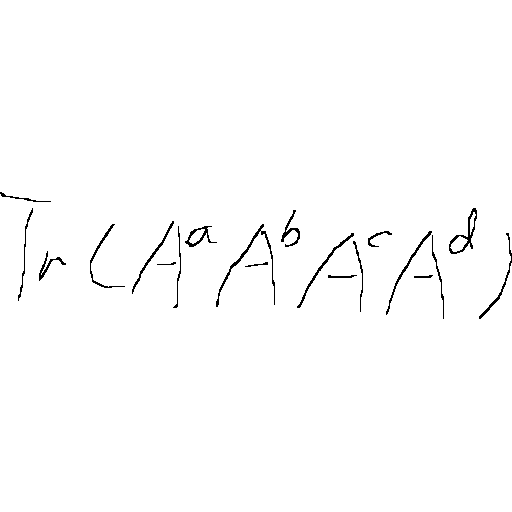 Tr(A^a A^b A^c A^d)